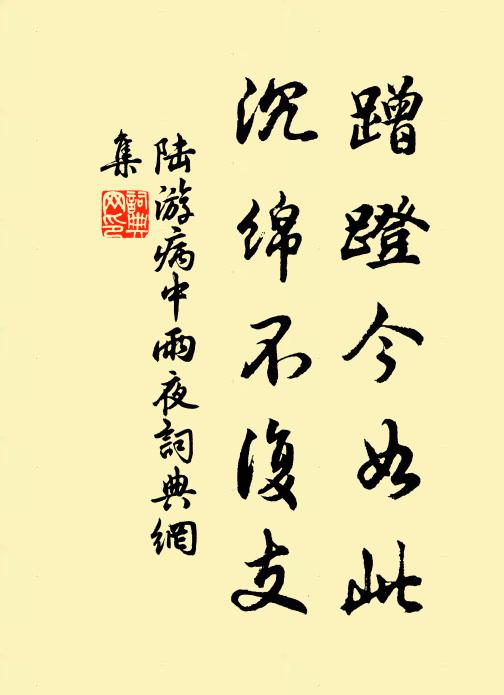 蹭蹬今如此
沉绵不復支
陆游病中雨夜詞典網
集
詞典
网印